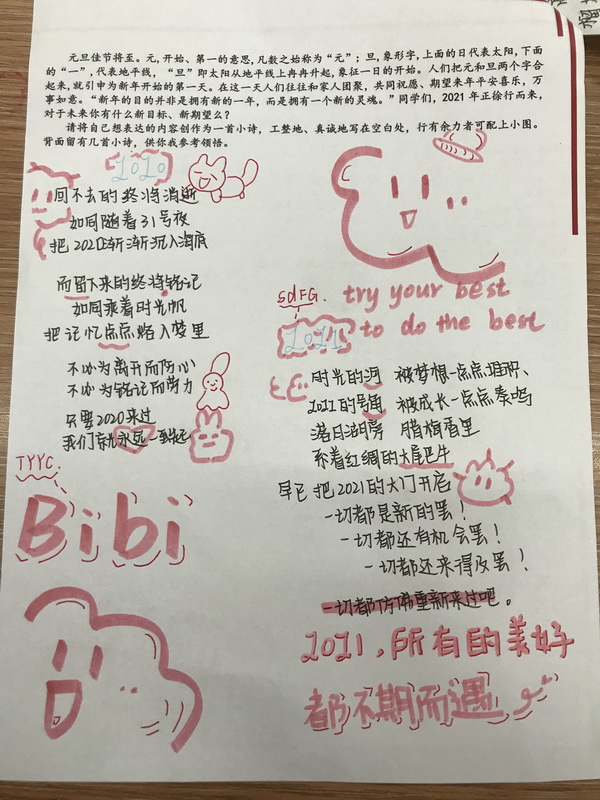 元旦佳节将至。元,开始、第一的意思,凡数之始称为“元”;旦,象形字,上面的日代表太阳,下面
的“一”,代表地平线,“旦”即太阳从地平线上冉冉升起,象征一日的开始。人们把元和旦两个字合
起来,就引申为新年开始的第一天。在这一天人们往往和家人团聚,共同祝愿、期望来年平安喜乐,万
事如意。“新年的目的并非是拥有新的一年,而是拥有一个新的灵魂。”同学们,2021年正徐行而来,
对于未来你有什么新目标、新期望么?
请将自己想表达的内容创作为一首小诗,工整地、真诚地写在空白处,行有余力者可配上小图。
背面留有几首小诗,供你我参考领悟。
2020
回不去的终将消逝
如同随着31号夜
把2020渐渐沉入海底
而留下来的终将铭记
如同乘着时光帆
把记忆点点踏入梦里
不必为离开而伤心
不必为铭记而努力
只要2020来过
我们就永远一直在
TYYC.
Bibi
sdFG.
try your best
2021
to do the best
时光的河 被梦想一点点堆积、
2021的号角 被成长一点点奏鸣
落日湖旁 腊梅香里
系着红绸的大尾巴牛
早已把2021的大门开启
一切都是新的罢!
一切都还有机会罢!
一切都还来得及罢!
一切都仿佛重新来过吧。
2021,所有的美好
都不期而遇